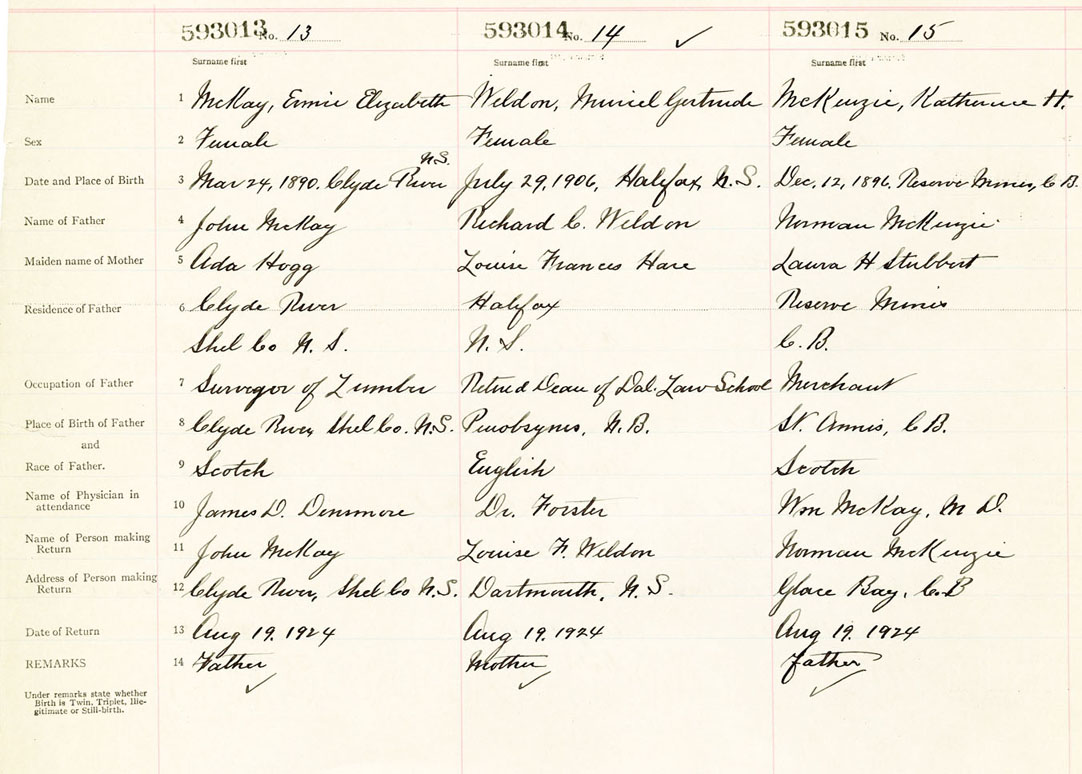 593013 No. 13 593014 No. 14 ✓ 593015 No. 15
Surname first Surname first Surname first
Name 1 McKay, Ernie Elizabeth Weldon, Muriel Gertrude McKenzie, Katherine H.
Sex 2 Female Female Female
N.S.
Date and Place of Birth 3 Mar 24, 1890. Clyde River July 29, 1906, Halifax, N.S. Dec. 12, 1896. Reserve Mines, C.B.
Name of Father 4 John McKay Richard C. Weldon Norman McKenzie
Maiden name of Mother 5 Ada Hogg Louise Frances Hare Laura H Stubbert
Residence of Father 6 Clyde River Halifax Reserve Mines
Shel Co N. S. N. S. C. B.
Occupation of Father 7 Surveyor of Lumber Retired Dean of Dal. Law School Merchant
Place of Birth of Father 8 Clyde River, Shel Co. N.S. N.B. St. Annis, C B.
and
Race of Father. 9 Scotch English Scotch
Name of Physician in
attendance 10 James D. Densmore Dr. Forster Wm McKay, M D.
Name of Person making
Return 11 John McKay Louise F. Weldon Norman McKenzie
Address of Person making
Return 12 Clyde River, Shel Co N.S. Dartmouth, N.S. Glace Bay, C.B
Date of Return 13 Aug 19. 1924 Aug 19. 1924 Aug 19. 1924
REMARKS 14 Father Mother Father
Under remarks state whether
Birth is Twin, Triplet, Ille-
gitimate or Still-birth.